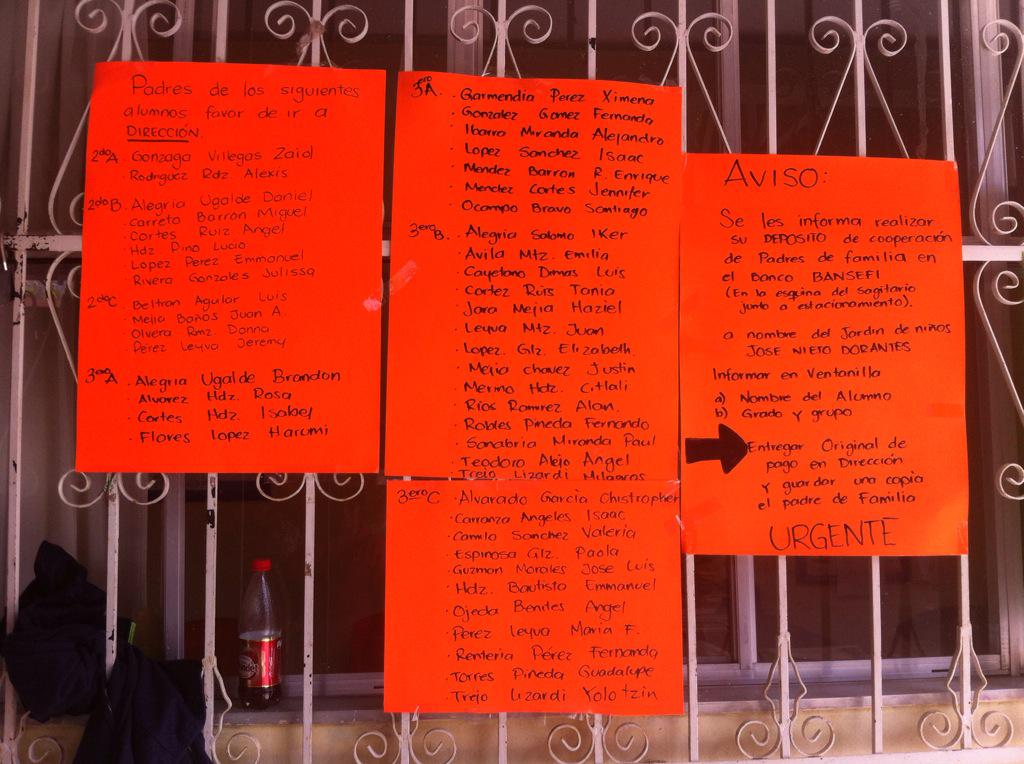 Padres de los siguientes
alumnos favor de ir a
DIRECCIÓN.
2do A. Gonzaga Villegas Zaid
. Rodriguez Rdz. Alexis
2do B. Alegria Ugalde Daniel
. Carreto Barrón Miguel
. Cortes Ruiz Angel
. Hdz Pino Lucio
. Lopez Perez Emmanuel
. Rivera Gonzales Julissa
2do C. Beltran Aguilar Luis
. Mejia Baños Juan A.
. Olvera Rmz. Danna
. Perez Leyva Jeremy
3ero A. Alegria Ugalde Brandon
. Alvarez Hdz. Rosa
. Cortes Hdz. Isabel
. Flores Lopez Harumi
3ero A. . Garmendia Perez Ximena
. Gonzalez Gomez Fernando
. Ibarra Miranda Alejandro
. Lopez Sanchez Isaac
. Mendez Barron R. Enrique
. Mendez Cortes Jennifer
. Ocampo Bravo Santiago
3ero B. . Alegria Salomo Iker
. Avila Mtz. Emilia
. Cayetano Dimas Luis
. Cortez Ruis Tania
. Jara Mejia Haziel
. Leyva Mtz. Juan
. Lopez. Glz. Elizabeth.
. Mejia Chavez Justin
. Merino Hdz. Citlali
. Rios Ramirez Alan.
. Robles Pineda Fernando
. Sanabria Miranda Paul
. Teodoro Alejo Angel
. Trejo Lizardi Milagros
3ero C . Alvarado Garcia Christopher
. Carranza Angeles Isaac
. Camilo Sanchez Valeria
. Espinosa Glz. Paola
. Guzman Morales Jose Luis
. Hdz. Bautista Emmanuel
. Ojeda Bendes Angel
. Perez Leyva Maria F.
. Renteria Pérez Fernanda
. Torres Pineda Guadalupe
. Trejo Lizardi Yolotzin
AVISO:
Se les informa realizar
su DEPOSITO de cooperación
de Padres de familia en
el Banco BANSEFI
(En la esquina del Sagitario
junto a estacionamiento).
a nombre del Jardin de niños
JOSE NIETO DORANTES
Informar en Ventanilla
a) Nombre del Alumno
b) Grado y grupo
Entregar Original de
pago en Dirección
y guardar una copia
el padre de Familia
URGENTE